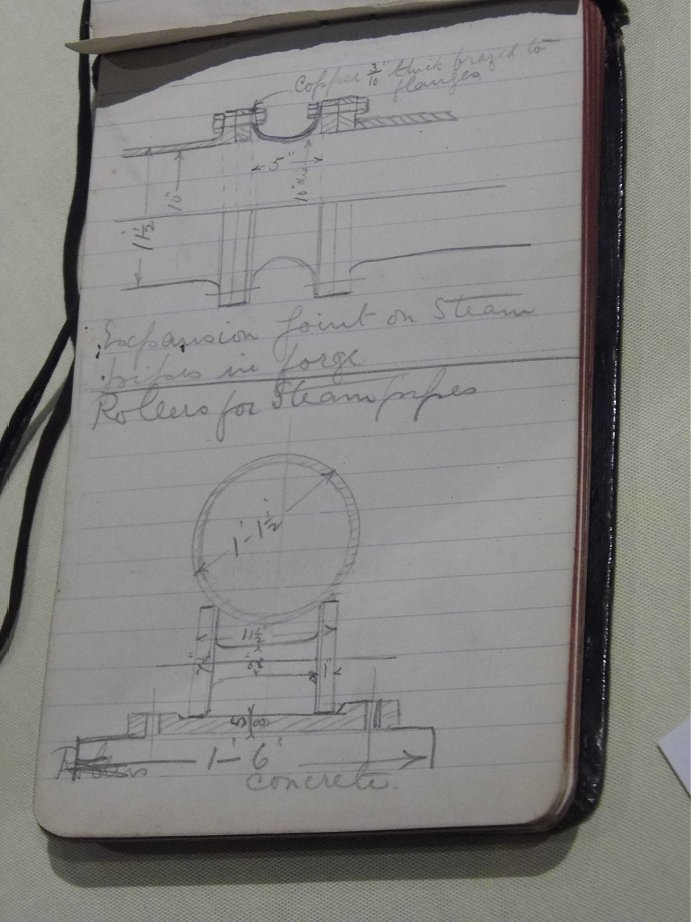 Copper 3/16" thick braz'd to
flanges
5"
10"
10"
1' 1½
Expansion Joint on Steam
pipes in forge
Rollers for Steam pipes
1'-1½"
11½"
1"
5/8
1'-6"
Rollers
Concrete.